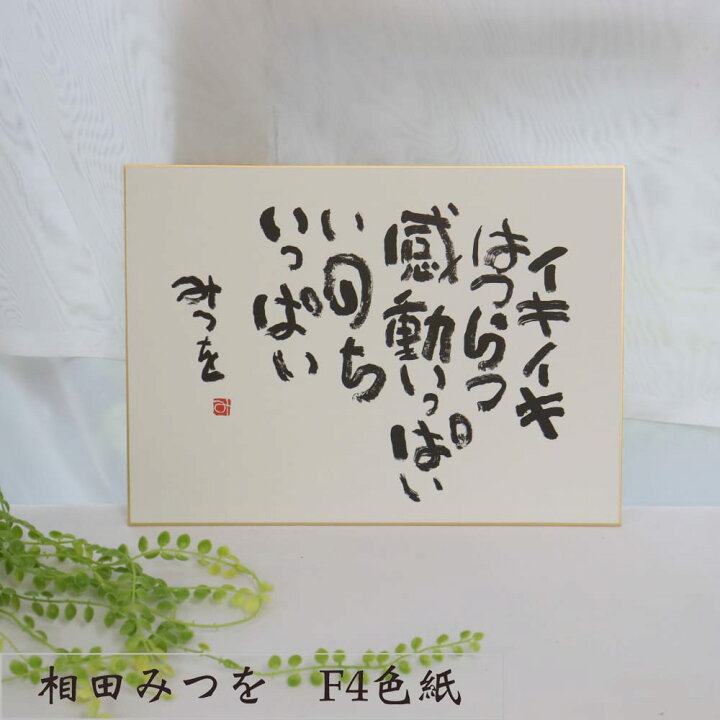 イキイキ
はつらつ
感動いっぱい
いのち
いっぱい
みつを
相田みつを　F4色紙